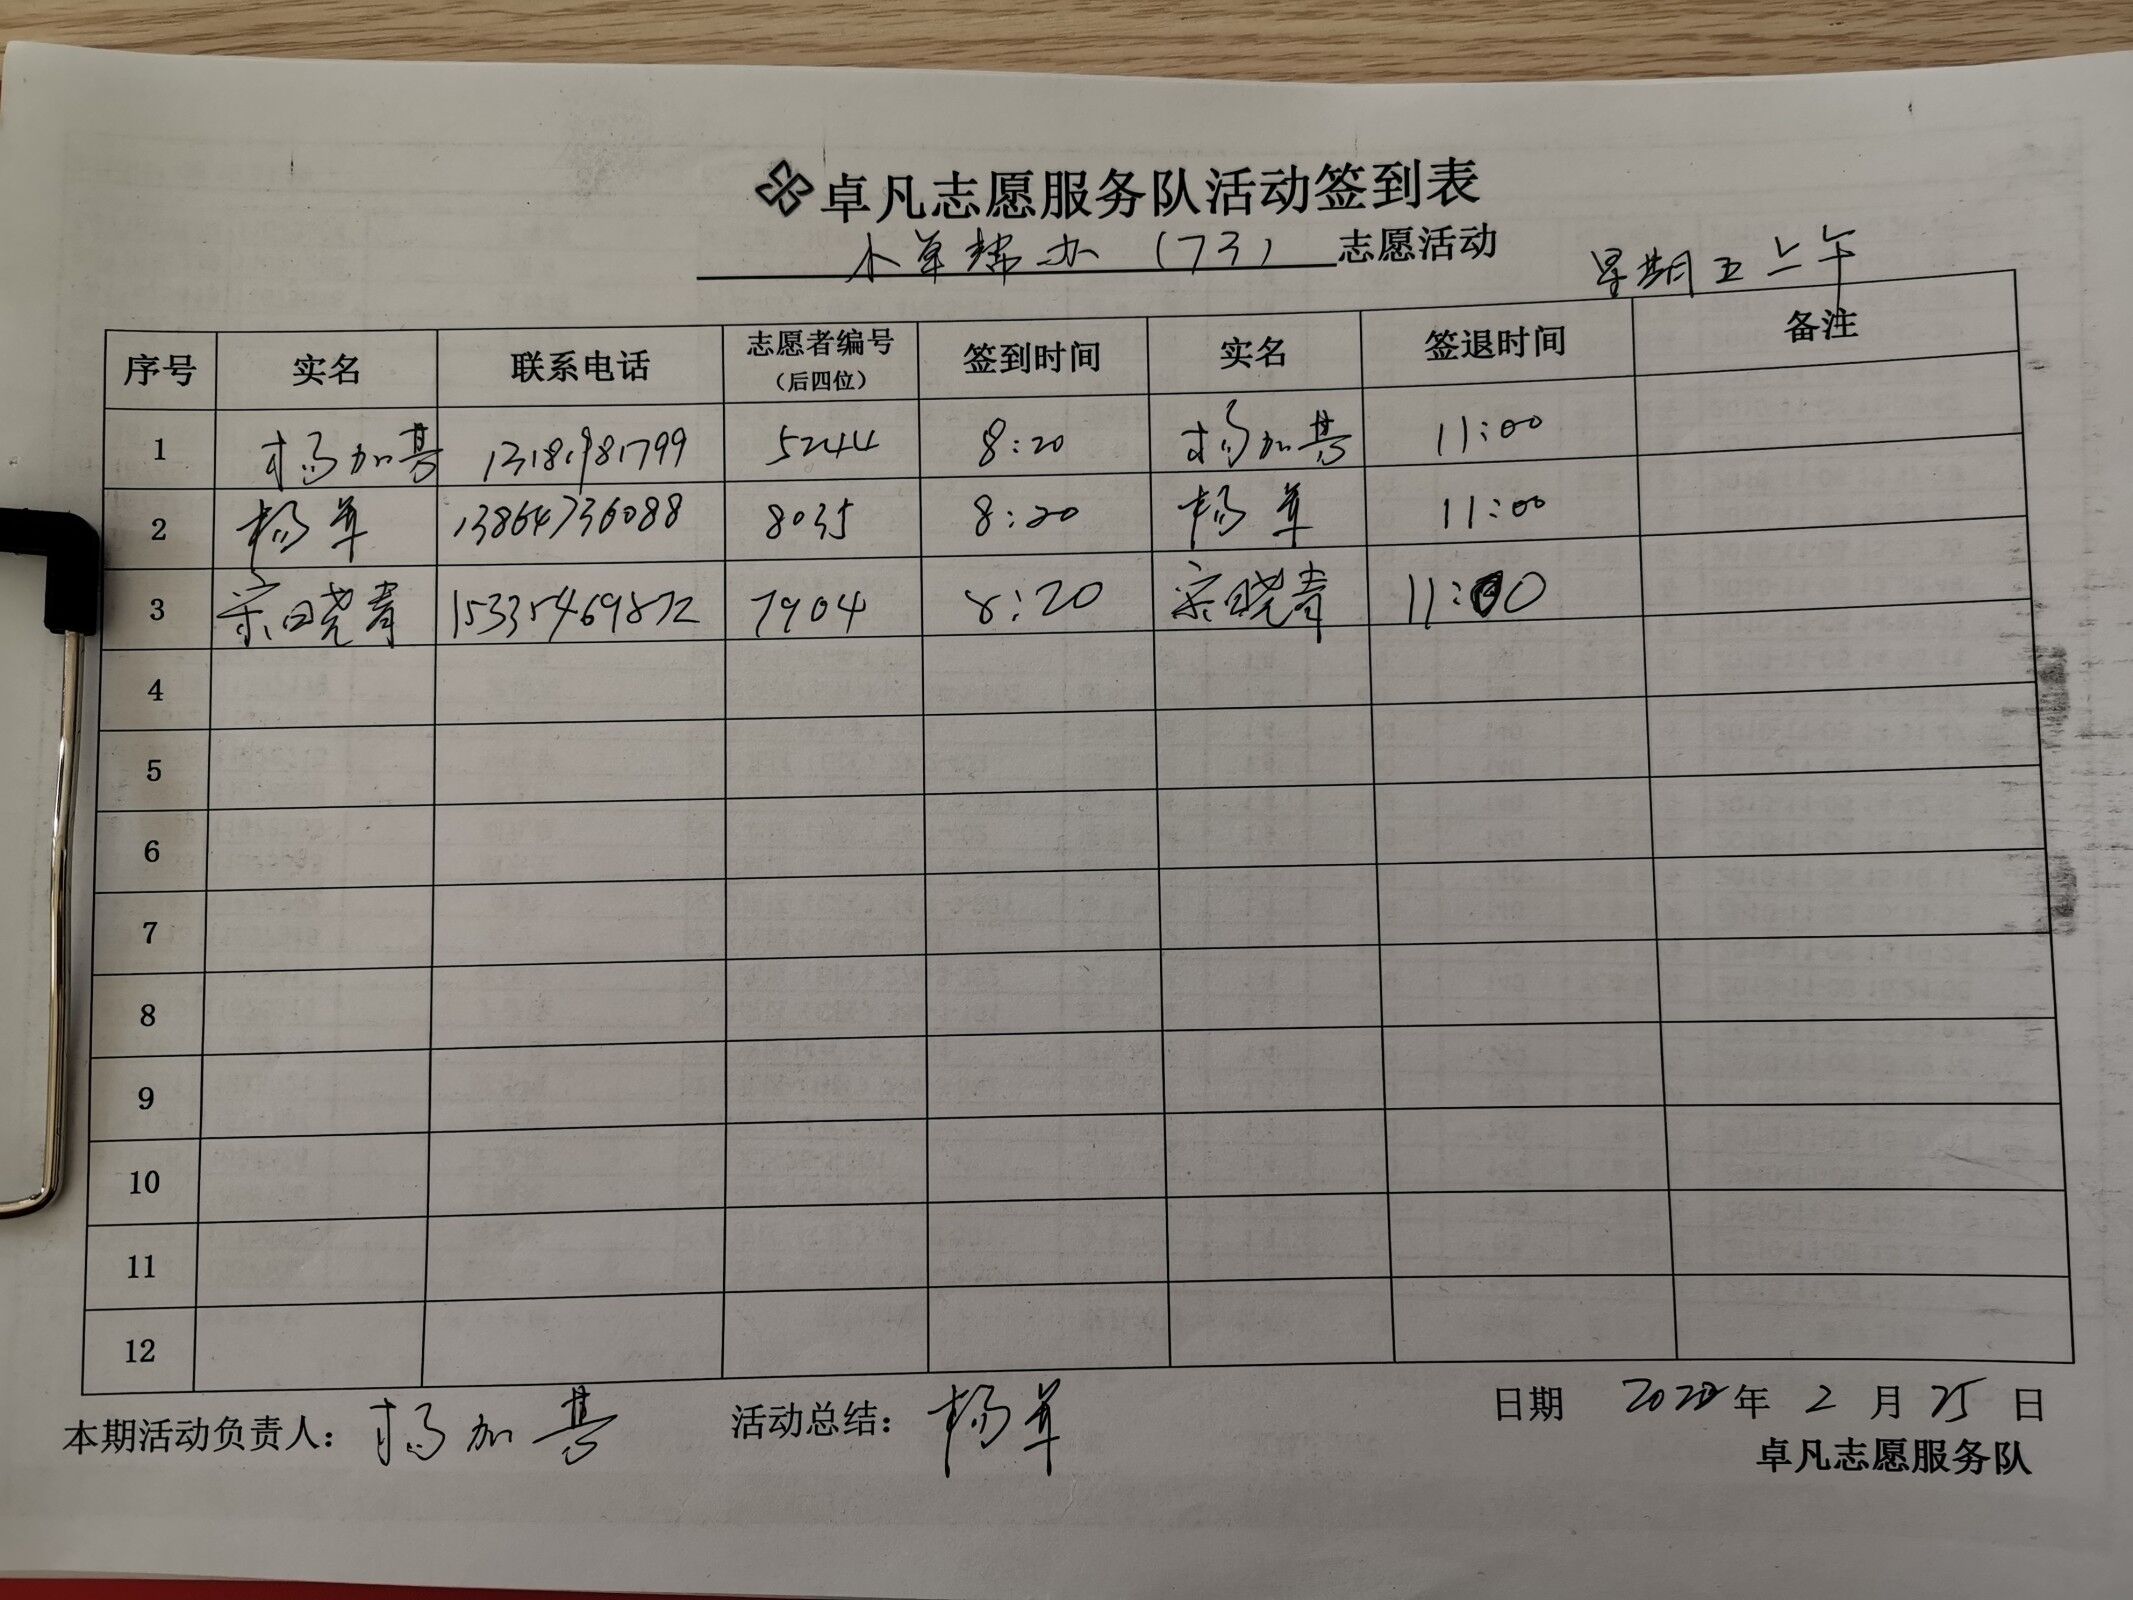 卓凡志愿服务队活动签到表
小单帮办（73）志愿活动 星期五上午
序号 实名 联系电话 志愿者编号（后四位） 签到时间 实名 签退时间 备注
1 杨加基 13181981799 5244 8:20 杨加基 11:00
2 杨军 13864736088 8035 8:20 杨军 11:00
3 宋晓青 15335469872 7904 8:20 宋晓青 11:00
4
5
6
7
8
9
10
11
12
本期活动负责人：杨加基 活动总结：杨军 日期 2022年2月25日
卓凡志愿服务队